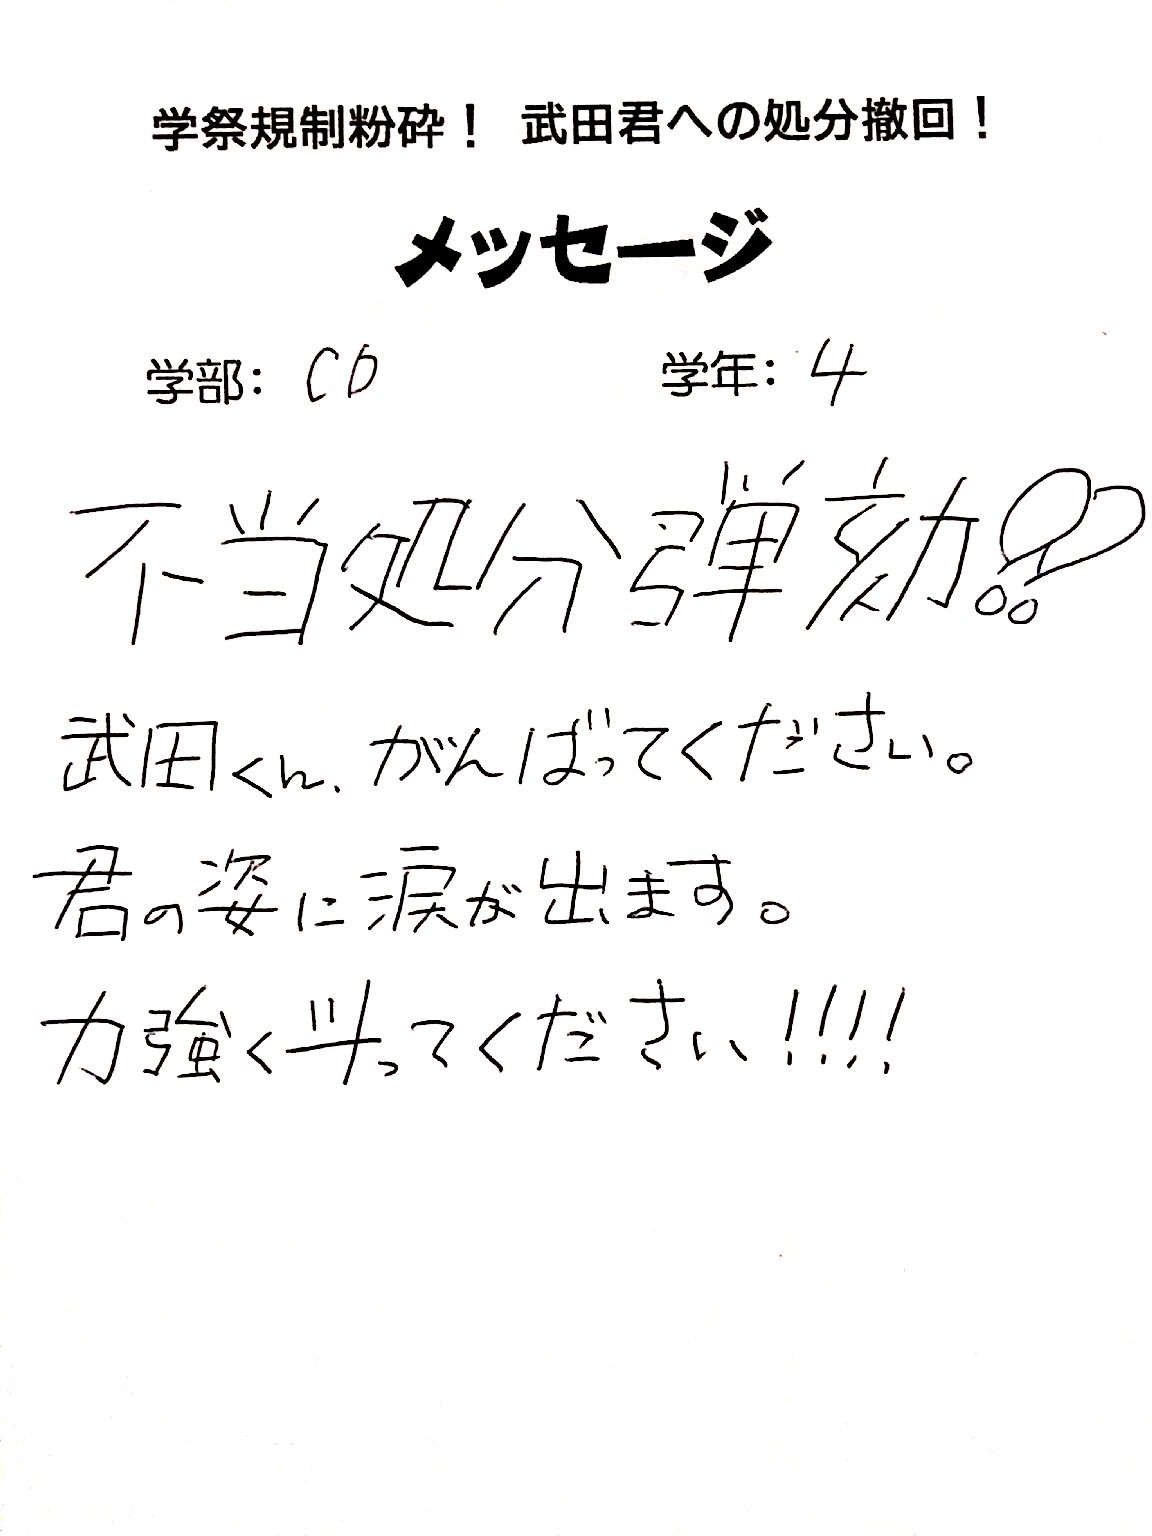 学祭規制粉砕！ 武田君への処分撤回！
メッセージ
学部： CD 学年： 4
不当処分弾劾!!
武田くん、がんばってください。
君の姿に涙が出ます。
力強く斗ってください!!!!